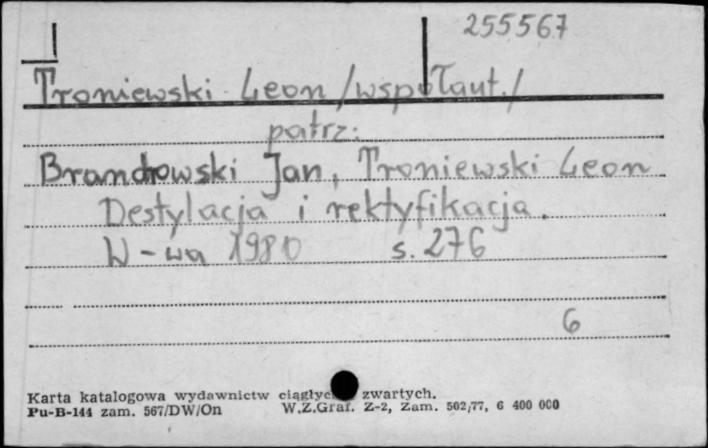 255567
Troniewski Leon /współaut./
patrz:
Brandrowski Jan, Troniewski Leon
Destylacja i rektyfikacja.
W-wa 1980 s. 276
6
Karta katalogowa wydawnictw ciągłych zwartych.
Pu-B-144 zam. 567/DW/On W.Z.Graf. Z-2, Zam. 502,77, 6 400 000